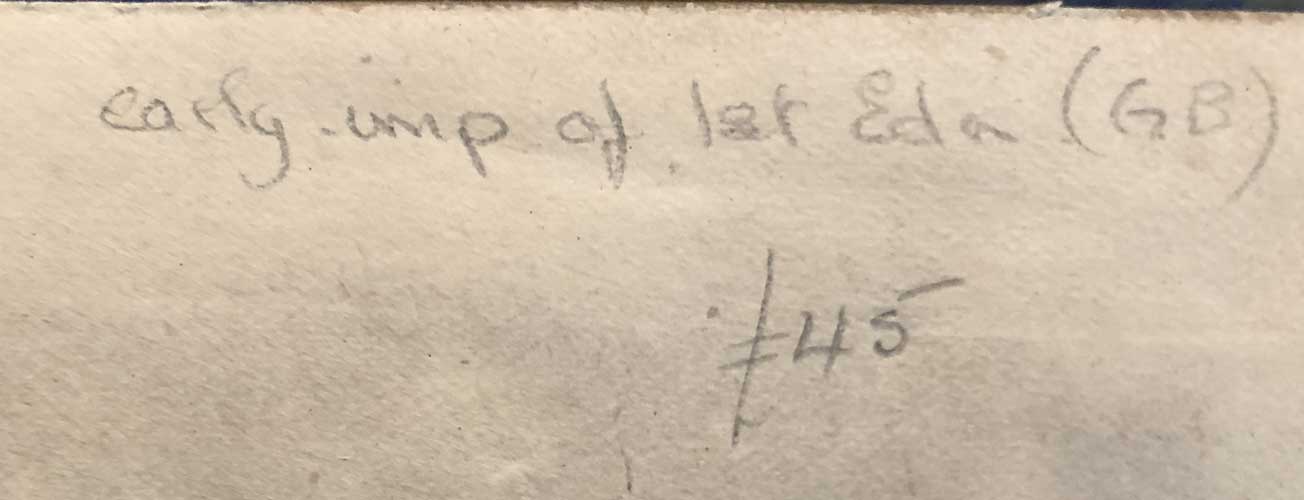 early imp of 1st Edn (GB)
£45